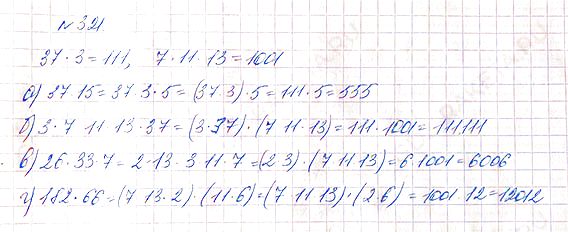 № 321.
37 · 3 = 111, 7 · 11 · 13 = 1001
а) 37 15 = 37 3 · 5 = (37 3) · 5 = 111 · 5 = 555
б) 3 · 7 11 13 · 37 = (3 · 37) · (7 11 · 13) = 111 · 1001 = 111111
в) 26 · 33 · 7 = 2 · 13 · 3 11 · 7 = (2 3) · (7 11 13) = 6 1001 = 6006
г) 182 · 66 = (7 13 · 2) · (11 · 6) = (7 11 13) · (2 6) = 1001 · 12 = 12012